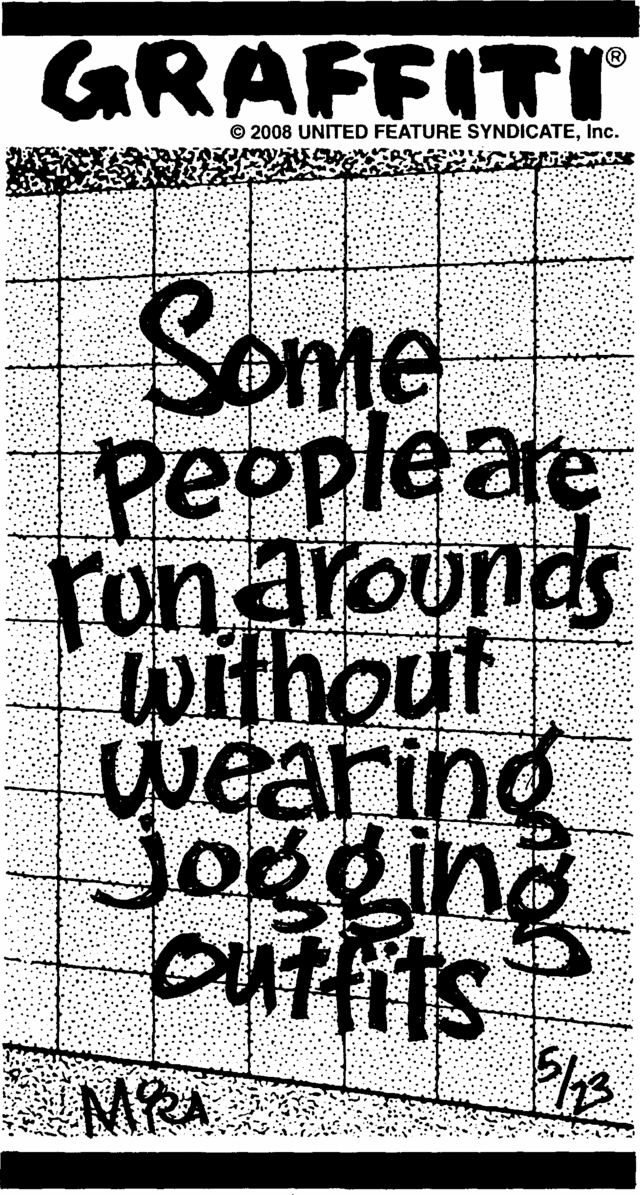 GRAFFITI®
© 2008 UNITED FEATURE SYNDICATE, Inc.
Some
people are
run arounds
without
wearing
jogging
outfits
5/23
MORA